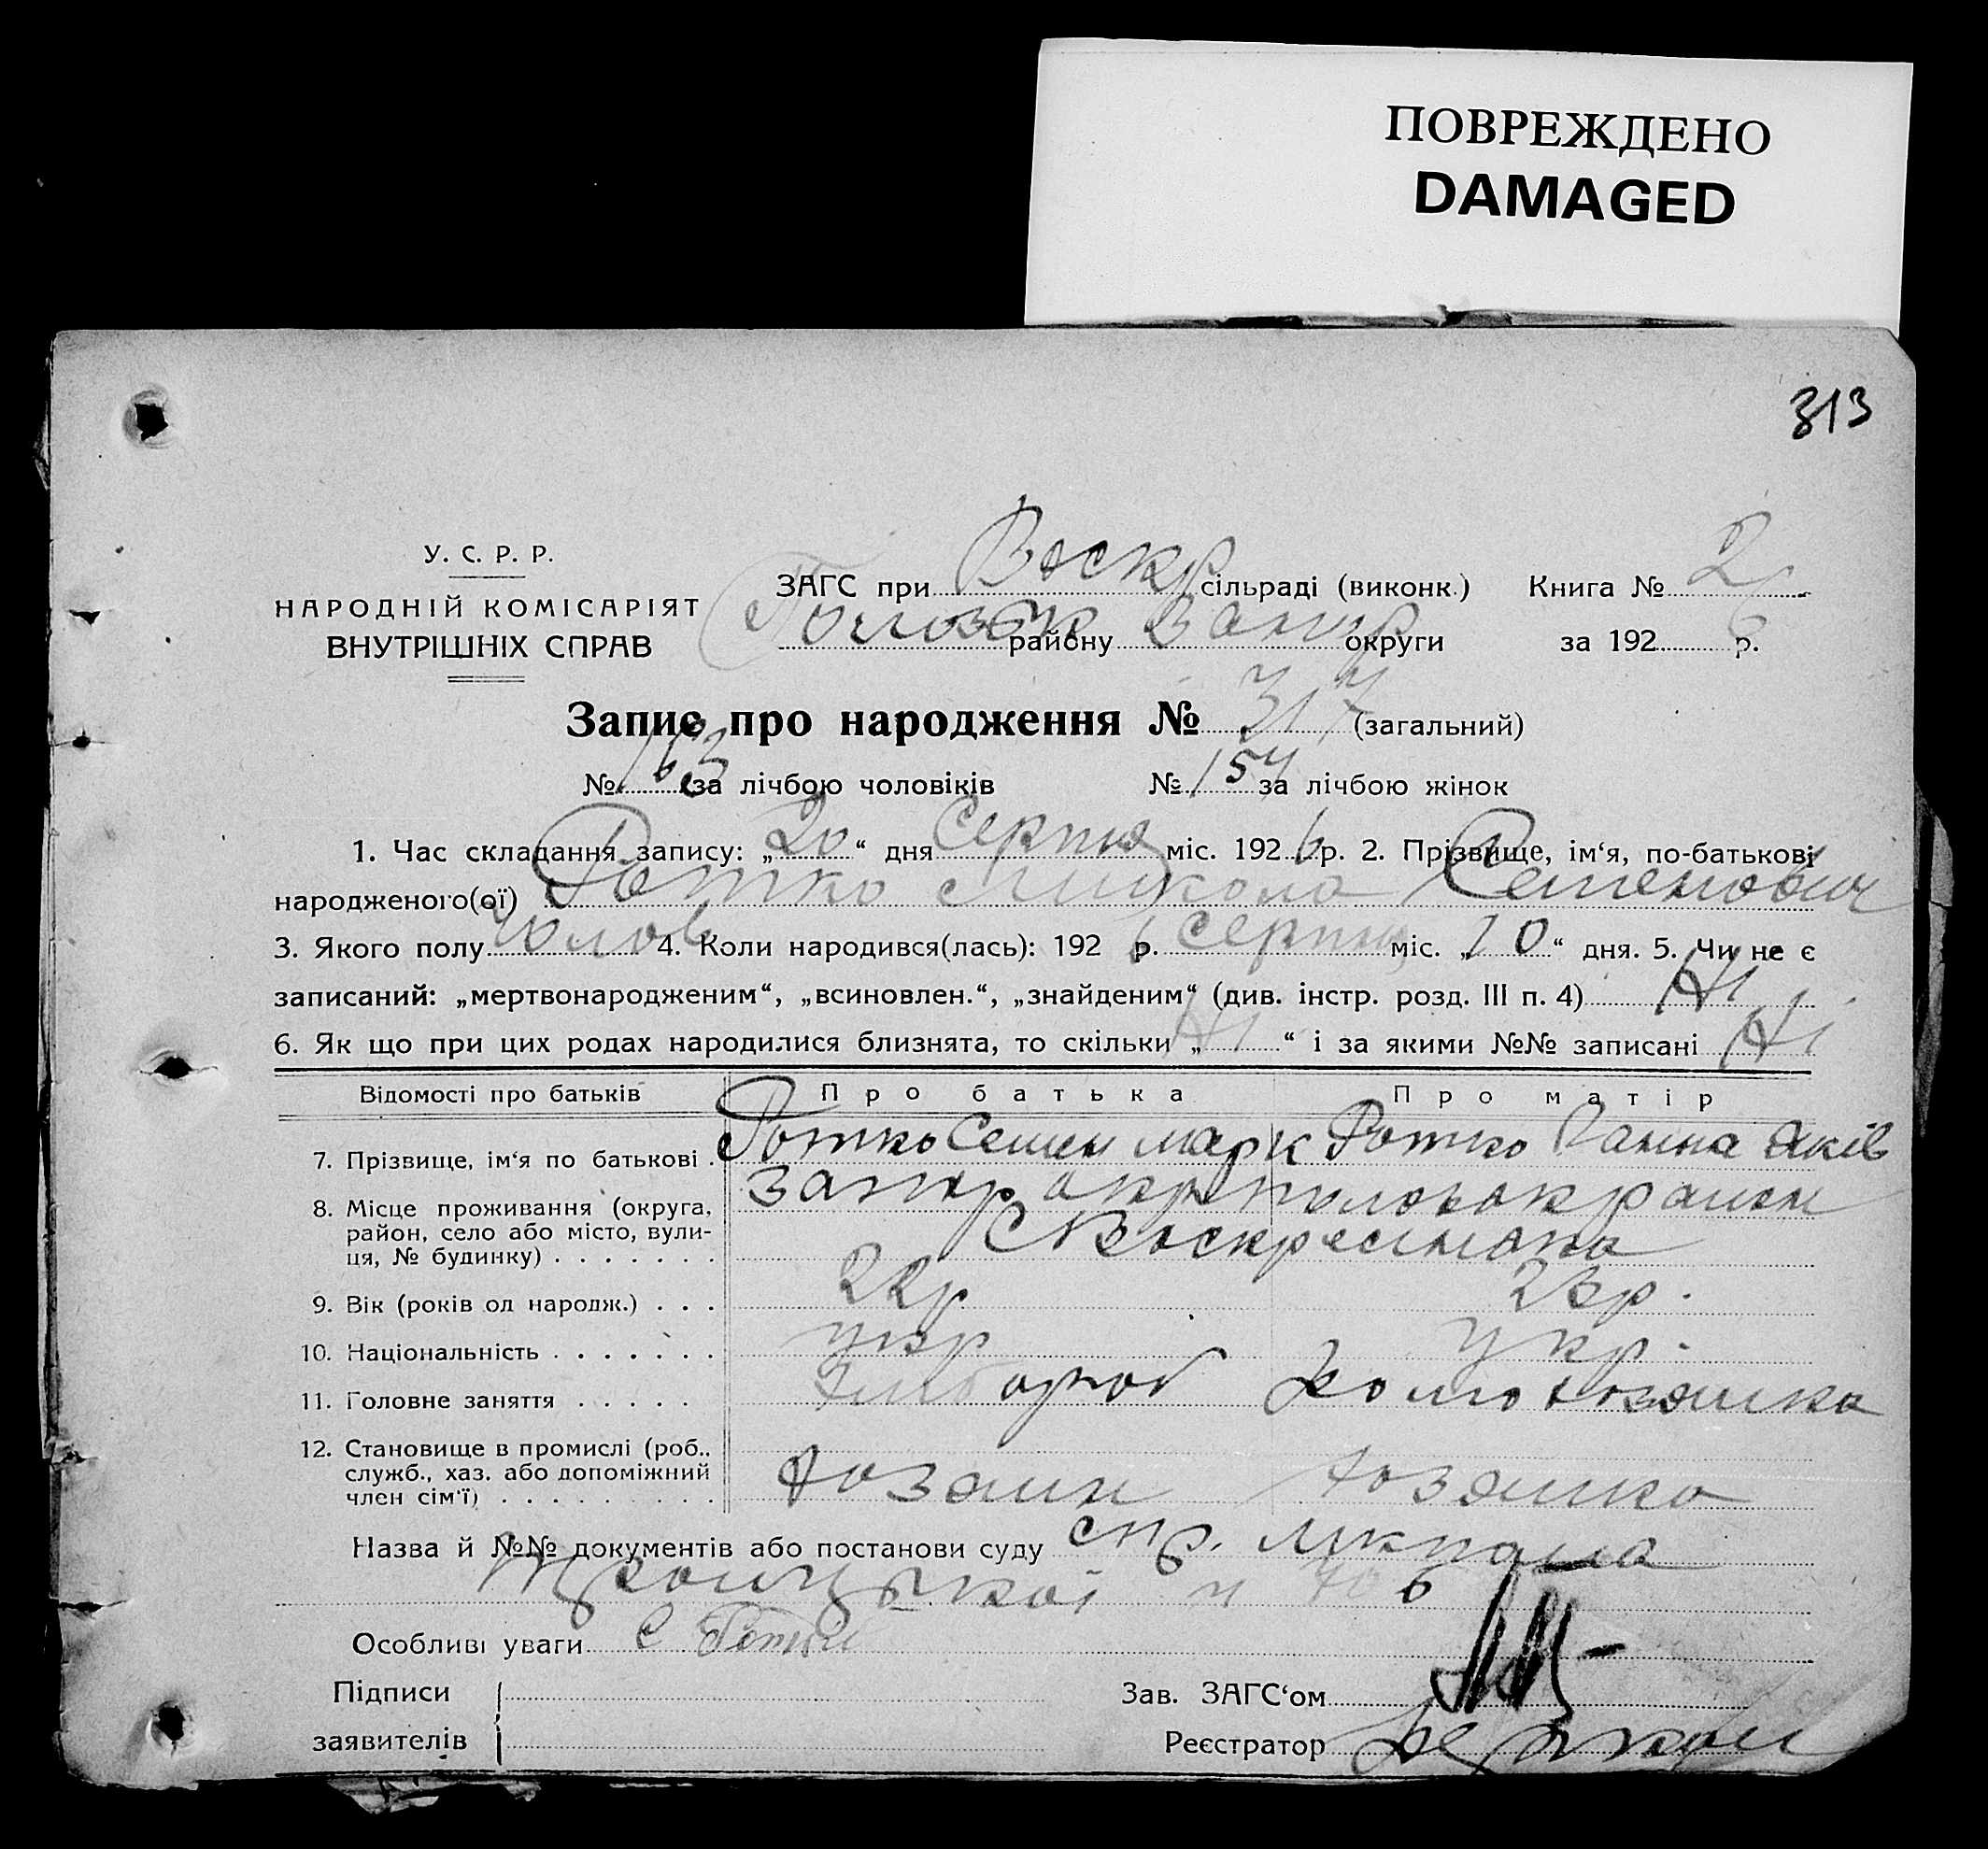 ПОВРЕЖДЕНО
DAMAGED
313
У. С. Р. Р.
НАРОДНІЙ КОМІСАРІЯТ
ВНУТРІШНІХ СПРАВ
ЗАГС при Воскр сільраді (виконк.) Книга № 2
району Запор округи за 192 6 р.
Запис про народження № 317 (загальний)
№ 163 за лічбою чоловіків № 154 за лічбою жінок
1. Час складання запису: „20“ дня Серпня міс. 1926 р. 2. Прізвище, ім‘я, по-батькові
народженого(ої) Ротко Микола Семенович
3. Якого полу чолов 4. Коли народився(лась): 192 6 р. серпня міс. „10“ дня. 5. Чи не є
записаний: „мертвонародженим“, „всиновлен.“, „знайденим“ (див. інстр. розд. III п. 4) Ні
6. Як що при цих родах народилися близнята, то скільки „Ні“ і за якими №№ записані Ні
Відомості про батьків Про батька Про матір
7. Прізвище, ім‘я по батькові . Ротко Семен Марк Ротко Ганна Яків
8. Місце проживання (округа, район, село або місто, вулиця, № будинку) . . . . . . . Запор окр район
С Воскресенка
9. Вік (років од народж.) . . . 22р 23р.
10. Національність . . . . . . . укр укр.
11. Головне заняття . . . . . хлібороб Домохозяйка
12. Становище в промислі (роб., служб., хаз. або допоміжний член сім‘ї) . . . . . . . . . Хозяин хозяйка
Назва й №№ документів або постанови суду спр.
Особливі уваги С Ротко
Підписи
заявителів
Зав. ЗАГС‘ом
Реєстратор